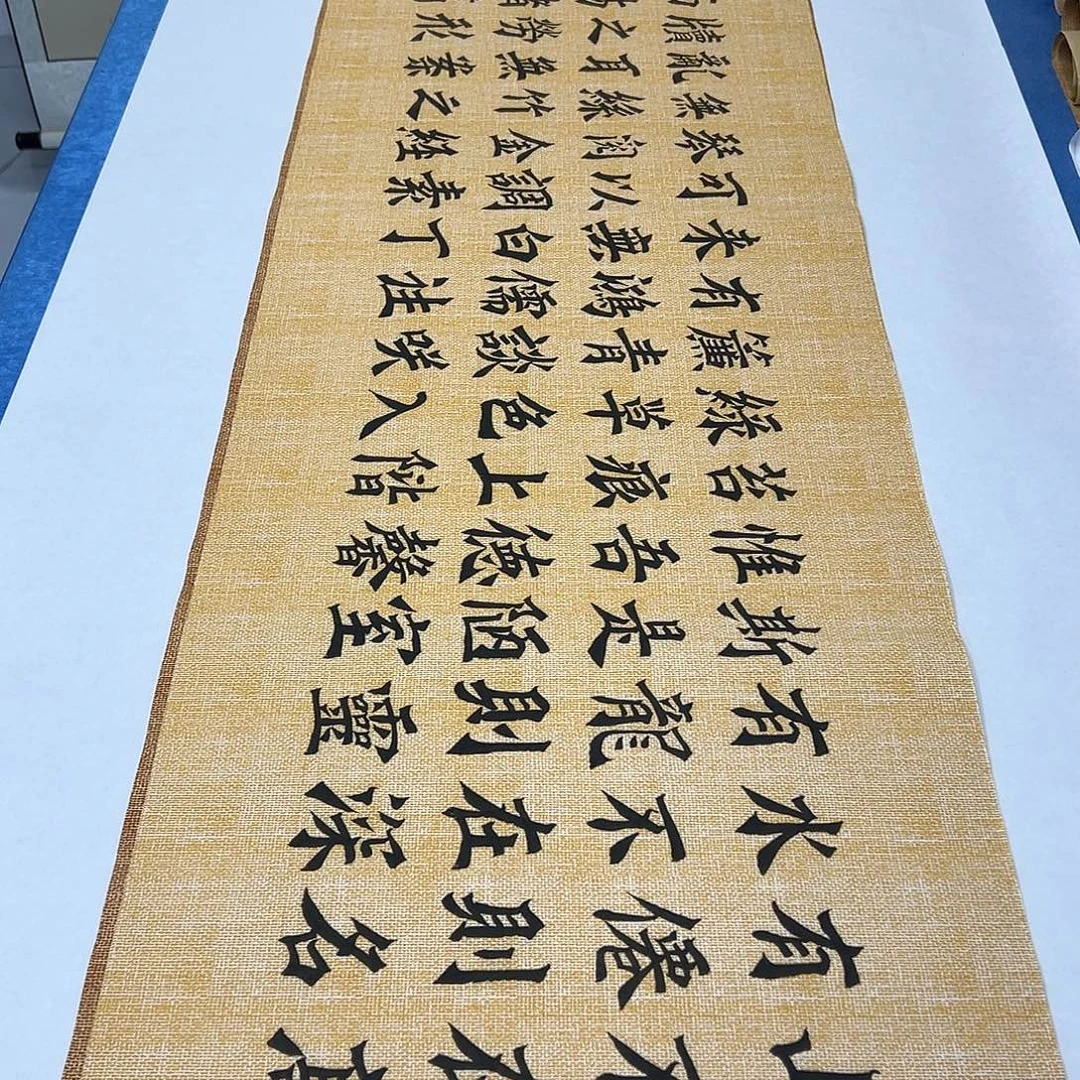 山不在高
有僊則名
水不在深
有龍則靈
斯是陋室
惟吾德馨
苔痕上階
綠草色入
簾青談咲
有鴻儒往
来無白丁
可以調素
琴閱金經
無絲竹之
亂耳無案
牘之勞形